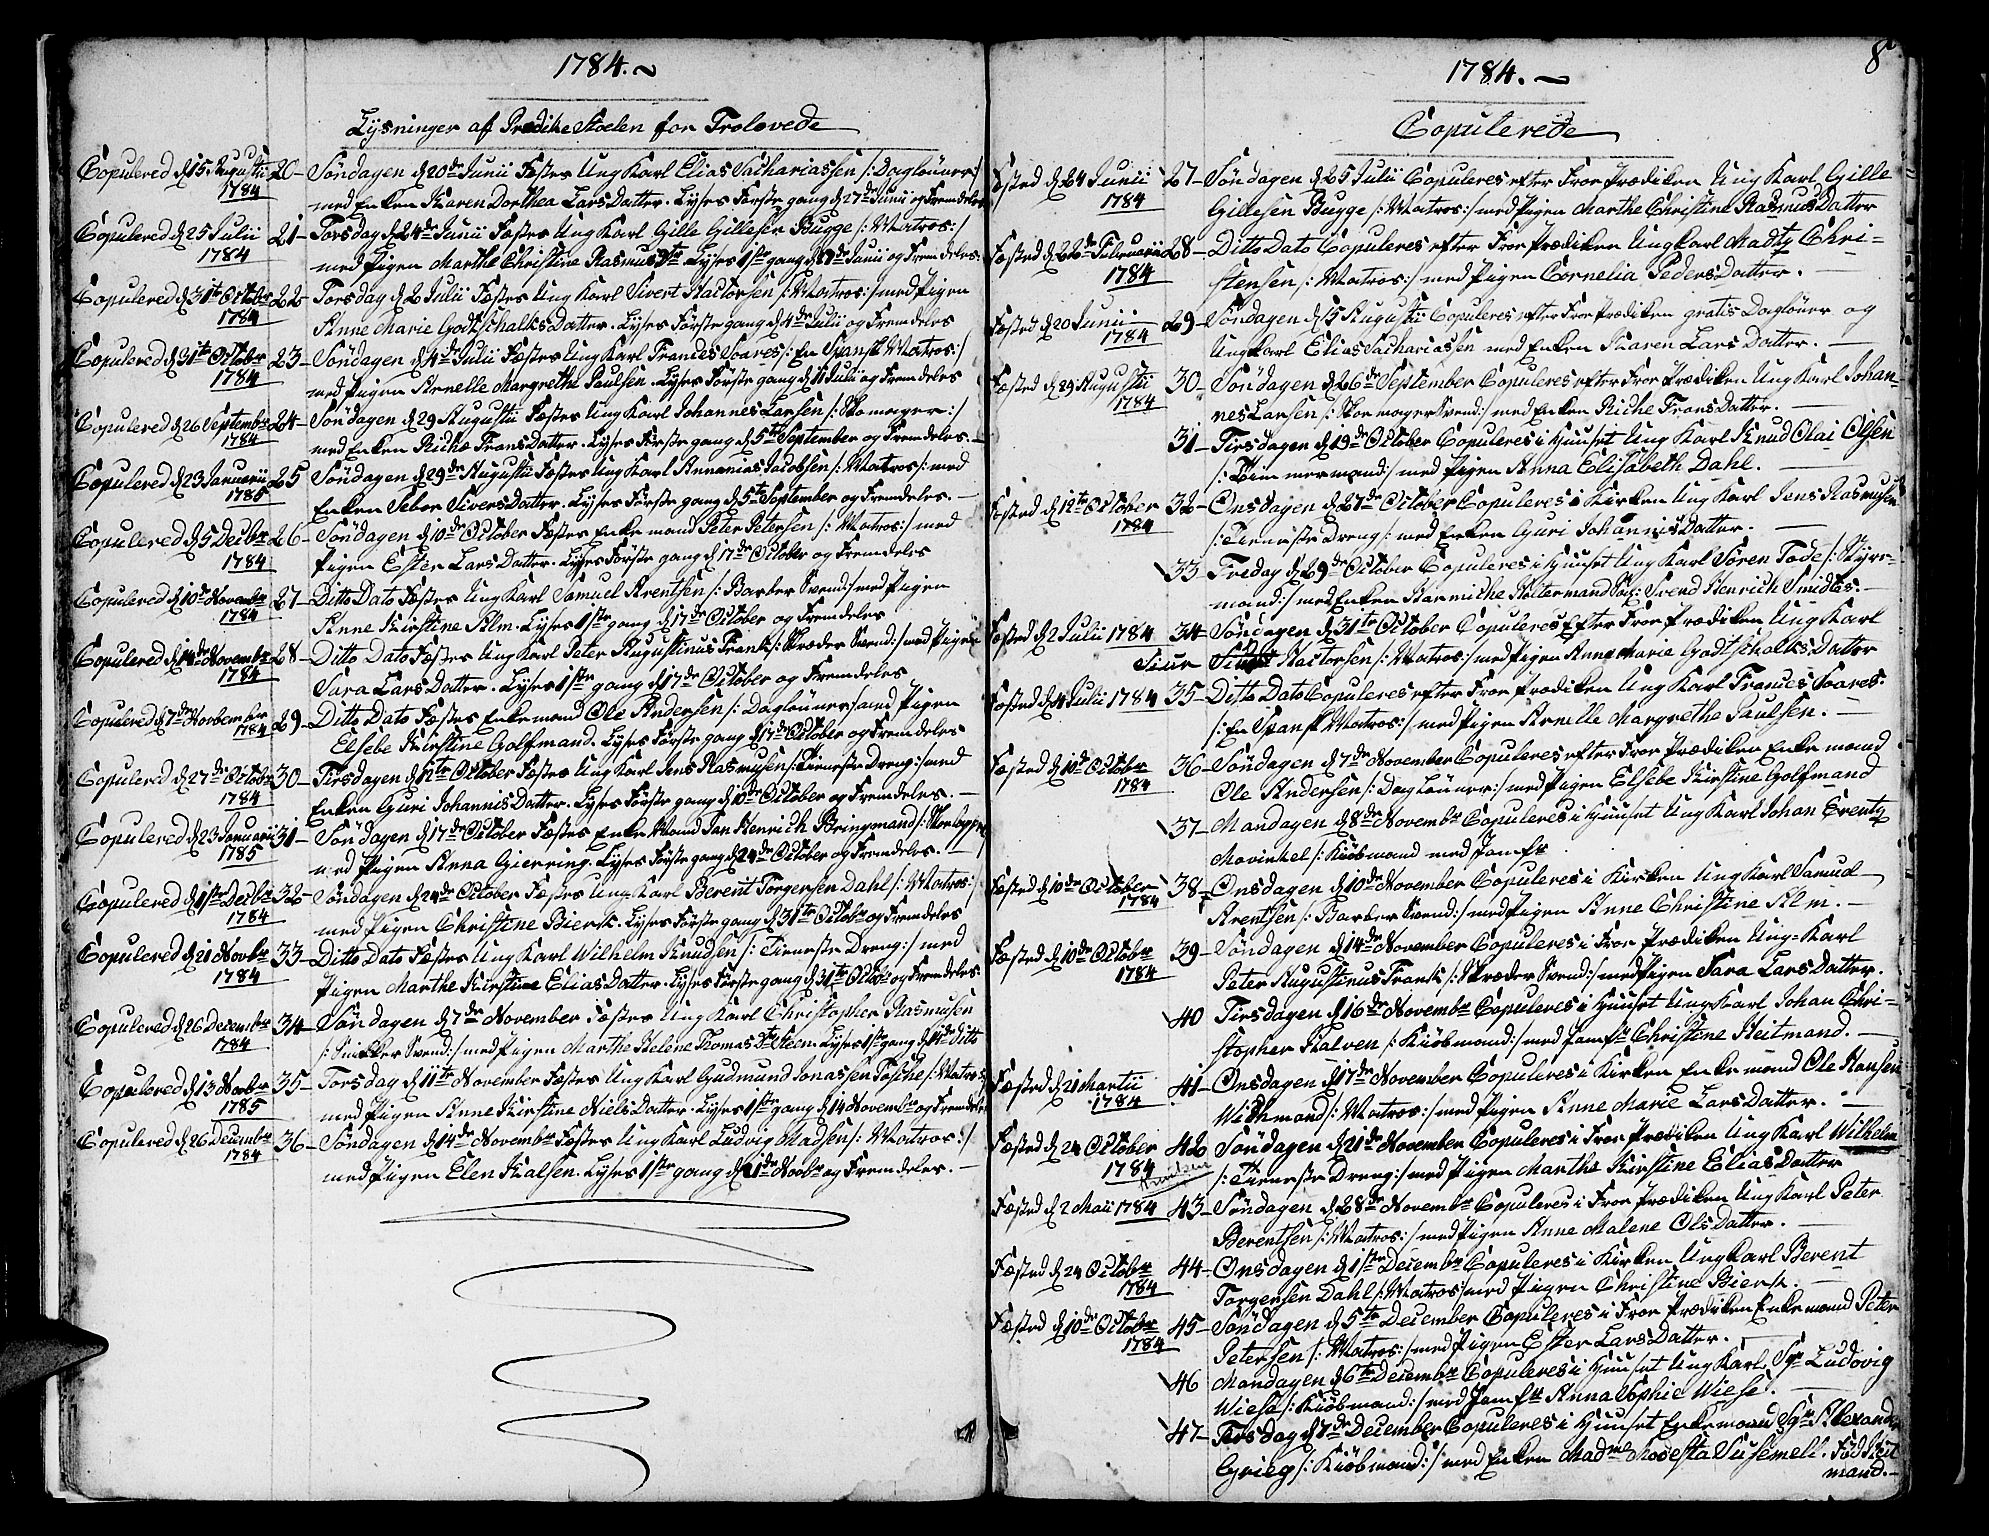 1784.
Lysninger af Prædike Stoelen for Trolovede
Copulered d 15 Augustii 1784 20- Søndagen d 20de Junii Fæstes Ung Karl Elias Sachariassen /: Dagløner :/
med Enken Karen Dorthea Lars Datter. Lyses Förste gang d 27de Junii og Fremdeles
Copulered d 25 Julii 1784 21- Torsdag d 24de Junii Fæstes Ung Karl Gille Gillesen Bugge /: Matros :/
med Pigen Marthe Christine Rasmus Dtr Lyses 1ste gang d Junii og Fremdeles.
Copulered d 31te Octobr 1784 22 Torsdag d 2 Julii Fæstes Ung Karl Sivert Hactorsen /: Matros :/ med Pigen
Anne Marie Godtschalks Datter. Lyses Förste gang d 4de Julii og Fremdeles
Copulered d 31te Octobr 1784 23- Søndagen d 4de Julii Fæstes Ung Karl Frances Soares /: En Spansk Matros :/
med Pigen Arnelle Margrethe Paulsen. Lyses Förste gang d 11 Julii og Fremdeles
Copulered d 26 Septembr 1784 24- Søndagen d 29 Augustii Fæstes Ung Karl Johannes Larsen /: Skomager :/
med Enken Riche Frans Datter. Lyses Förste gang d 5te September og Fremdeles.
Copulered d 23 Januarii 1785 25 Søndagen d 29de Augustii Fæstes Ung Karl Annanias Jacobsen /: Matros :/ med
Enken Seber Sivers Datter. Lyses Förste gang d 5te September og Fremdeles.
Copulered d 5 Decbr 1784 26- Søndagen d 10de October Fæstes Enke mand Peter Petersen /: Matros :/ med
Pigen Ester Lars Datter. Lyses Förste gang d 17de October og Fremdeles
Copulered d 10de Novembr 1784 27- Ditto Dato Fæstes Ung Karl Samuel Arentsen /: Barber Svend :/ med Pigen
Anne Kirstine Alm. Lyses 1ste gang d 17de October og Fremdeles
Copulered d 14de Novembr 1784 28- Ditto Dato Fæstes Ung Karl Peter Augustinus Frank /: Skræder Svend :/ med Pigen
Sara Lars Datter. Lyses 1ste gang d 17de October og Fremdeles
Copulered d 7de November 1784 29- Ditto Dato Fæstes Enkemand Ole Andersen /: Dagløner :/ med Pigen
Elsebe Kirstine Golfmand. Lyses Förste gang d 17de October og Fremdeles
Copulered d 27de Octobr 1784 30- Tirsdagen d 12te October Fæstes Ung Karl Jens Rasmusen /: Tieneste Dreng :/ med
Enken Guri Johannis Datter. Lyses Förste gang d 10de October og Fremdeles.
Copulered d 23 Januarii 1785 31- Søndagen d 17de October Fæstes Enke Mand Jan Henrich Bringmand
med Pigen Anna Gierring. Lyses Förste gang d 24de October og Fremdeles.
Copulered d 1ste Decbr 1784 32- Søndagen d 24de October Fæstes Ung Karl Berent Torgersen Dahl /: Matros :/
med Pigen Christine Biersk. Lyses Förste gang d 31te Octobr og Fremdeles
Copulered d 21 Novbr 1784 33- Ditto Dato Fæstes Ung Karl Wilhelm Knudsen /: Tieneste Dreng :/ med
Pigen Marthe Kirstine Elias Datter. Lyses Förste gang d 31te Octbr og Fremdeles
Copulered d 26 Decembr 1784 34- Søndagen d 7de November Fæstes Ung Karl Christopher Rasmusen
/: Snicker Svend :/ med Pigen Marthe Helene Thomas Dtr Steen. Lyses 1ste gang d 14de Ditto
Copulered d 13 Novbr 1785 35- Torsdag d 11te November Fæstes Ung Karl Gudmund Jonassen Tosche /: Matros
med Pigen Anne Kirstine Niels Datter. Lyses 1ste gang d 14 Novembr og Fremdeles
Copulered d 26 Decembr 1784 36- Søndagen d 14de Novembr Fæstes Ung Karl Ludvig Madsen /: Matros :/
med Pigen Elen Kalsen. Lyses 1ste gang d 21de Novbr og Fremdeles.
8
1784.
Copulerede
Fæsted d 24 Junii 1784 27- Søndagen d 25 Julii Copuleres efter Fror Prædiken Ung Karl Gille
Gillesen Bugge /: Matros :/ med Pigen Marthe Christine Rasmus Datter
Fæsted d 26de Februarii 1784 28- Ditto Dato Copuleres efter Fror Prædiken Ung Karl Madty Chri=
stensen /: Matros :/ med Pigen Cornelia Peders Datter.
Fæsted d 20 Junii 1784 29- Søndagen d 15 Augustii Copuleres efter Fror Prædiken gratis Dagløner og
Ungkarl Elias Sachariassen med Enken Karen Lars Datter.
Fæsted d 29 Augustii 1784 30- Søndagen d 26de September Copuleres efter Fror Prædiken Ung Karl Johan-
nes Larsen /: Skoemager Svend :/ med Enken Riche Frans Datter.
31- Tirsdagen d 19de October Copuleres i Huuset Ung Karl Knud Olai Olsen
/: Tømmermand :/ med Pigen Anna Elisabeth Dahl.
Fæsted d 12te October 1784 32- Onsdagen d 27de October Copuleres i Kirken Ung Karl Jens Rasmusen
/: Tieneste Dreng :/ med Enken Guri Johannis Datter.
33 Fredag d 29de October Copuleres i Huuset Ung Karl Søren Tode /: Styre-
mand :/ med Enken Harniche Holtermand Sal: Svend Henrich Smidtes.
Fæsted d 2 Julii 1784 34- Søndagen d 31te October Copuleres Efter Fror Prædiken Ung Karl
Siur Hactorsen /: Matros :/ med Pigen Anne Marie Godtschalks Datter
Fæsted d 4 Julii 1784 35- Ditto Dato Copuleres efter Fror Prædiken Ung Karl Frances Soares.
/: En Spansk Matros :/ med Pigen Arnille Margrethe Paulsen.
Fæsted d 10de Octobr 1784 36- Søndagen d 7de November Copuleres efter Fror Prædiken Enke mand
Ole Andersen /: Dagløner :/ med Pigen Elsebe Kirstine Golfmand
37- Mandagen d 8de Novembr Copuleres i Huuset Ung Karl Johan Erenty
Mowinkel /: Kiöbmand med Jomfr
Fæsted d 10de October 1784 38- Onsdagen d 10de November Copuleres i Kirken Ung Karl Samuel
Arentsen /: Barber Svend :/ med Pigen Anne Christine Alm.
Fæsted d 10de Octobr 1784 39- Søndagen d 14de November Copuleres i Fror Prædiken Ung-Karl
Peter Augustinus Frank /: Skræder Svend :/ med Pigen Sara Lars Datter.
40 Tirsdagen d 16de Novembr Copuleres i Huuset Ung Karl Johan Chri=
stopher Kalven /: Kiöbmand :/ med Jomfr Christine Heitmand.
Fæsted d 21 Martii 1784 41- Onsdagen d 17de November Copuleres i Kirken Enke mand Ole Hansen
Widhmand /: Matros :/ med Pigen Anne Marie Lars Datter.
Fæsted d 24 October 1784 42 Søndagen d 21de November Copuleres i Fror Prædiken Ung Karl Wilhelm
Knudsen /: Tieneste Dreng :/ med Pigen Marthe Kirstine Elias Datter
Fæsted d 2 Maii 1784 43- Søndagen d 28de Novembr Copuleres i Fror Prædiken Ung Karl Peter
Berentsen /: Matros :/ med Pigen Anne Malene Ols Datter.
Fæsted d 24 Octobr 1784 44- Onsdagen d 1ste Decembr Copuleres i Kirken Ung Karl Berent
Torgersen Dahl /: Matros :/ med Pigen Christine Biersk.
Fæsted d 10de Octobr 1784 45- Søndagen d 5te December Copuleres i Fror Prædiken Enke mand Peter
Petersen /: Matros :/ med Pigen Ester Lars Datter.
46 Mandagen d 6te Decembr Copuleres i Huuset Ung Karl Sgr Ludovig
Wiese /: Kiöbmand :/ med Jomfr Anna Sophie Wiese.
47- Tirsdag d 7de December Copuleres i Huuset Enkemand Sgr Alexander
Grieg /: Kiöbmand :/ med Enken Madme Modesta Susemell. Fød Heit
mand.